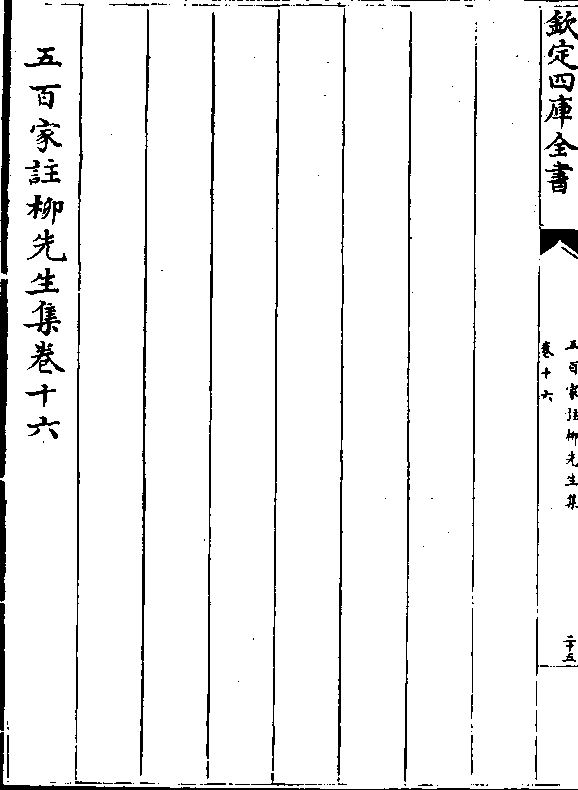 欽定四庫全書
五百家註柳先生集
卷十六
二十五
五百家註柳先生集卷十六